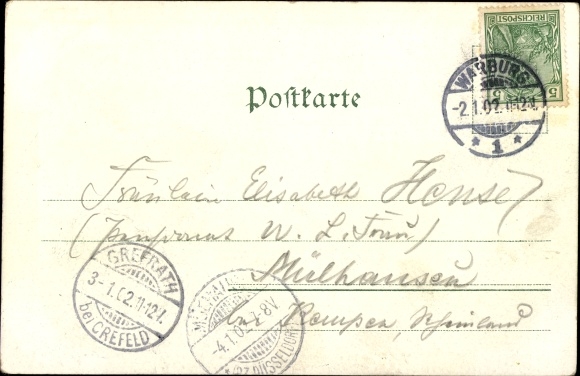 REICHSPOST
5
WARBURG
-2.1.02.11-12V.
* 1 *
Postkarte
Fräulein Elisabeth Hense
(Pensionat W. L. Frau)
Mülhausen
bei Kempen, Rheinland
GREFRATH
3-1.02.11-12V.
bei CREFELD
-4.1.02.7-8V
DÜSSELDORF